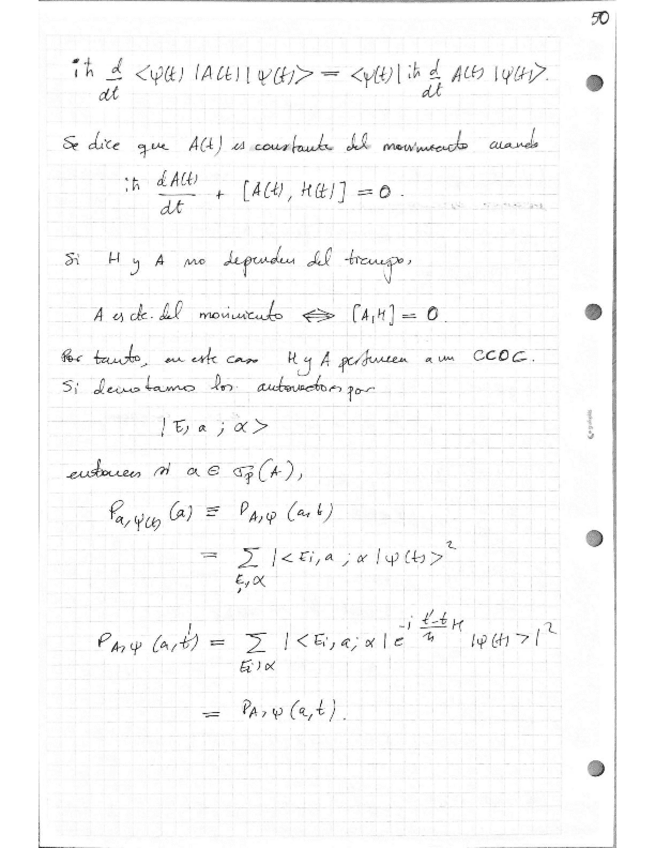 50
iħ d/dt <ψ(t)|A(t)|ψ(t)> = <ψ(t)|iħ d/dt A(t)|ψ(t)>.
Se dice que A(t) es constante del movimiento cuando
iħ dA(t)/dt + [A(t), H(t)] = 0.
Si H y A no dependen del tiempo,
A es cte. del movimiento ⇔ [A,H] = 0.
Por tanto, en este caso H y A pertenecen a un CCOC.
Si denotamo los autovectores por
|E, a ; α>
entonces si a ∈ σp(A),
Pa,ψ(t) (a) ≡ PA,ψ (a,t)
= Σ Ei,α |<Ei, a ; α|ψ(t)>²
PA,ψ (a,t') = Σ Ei,α |<Ei, a; α| e^(-i (t'-t)/ħ H) |ψ(t)>|²
= PA,ψ (a,t).